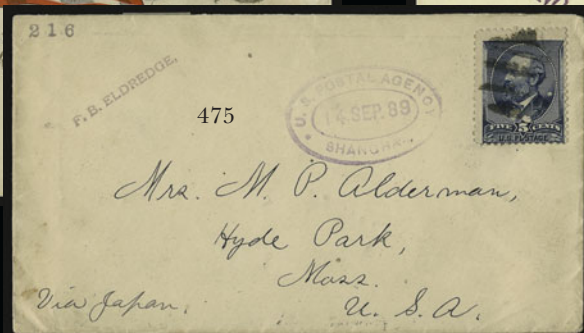 216
F. B. ELDREDGE.
475
U. S. POSTAL AGENCY
14 SEP. 88
SHANGHAI
FIVE 5 CENTS
U.S. POSTAGE
Mrs. M. P. Alderman,
Hyde Park,
Mass.
U. S. A.
Via Japan.